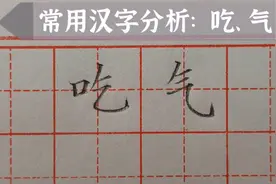 常用汉字分析：吃、气
吃 气